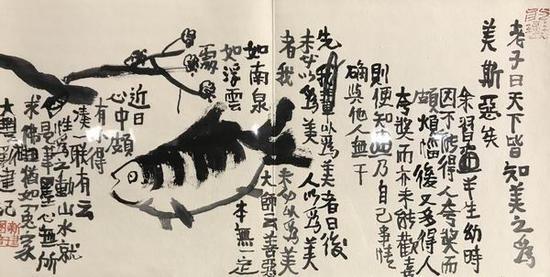 老子曰天下皆知美之為
美斯惡矣
余習畫半生幼時
因不能得人夸奖而
頗煩惱後又多得人
夸奖而亦未能歡喜
則便知畫乃自己事情
確與他人無干
先我輩以為美者日後
未必以為美 人以為美
者我 未必以為美
如南泉 大師云善惡
如浮雲 本無一定
處
近日
心中頗
有所得
一联有云
性為之動山水就
是筆墨心無所
求佛猶如冤家
建記